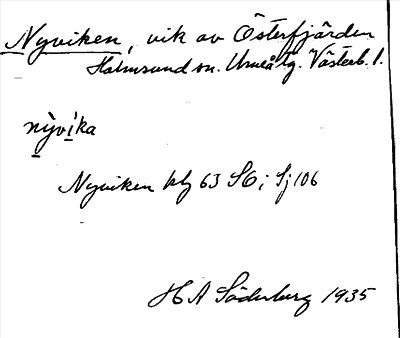 Nyviken, vik av Österfjärden
Holmsund sn. Umeå tg. Västerb. l.
nỳvíka
Nyviken blz 63 SO; Sj 106
H A Söderberg 1935